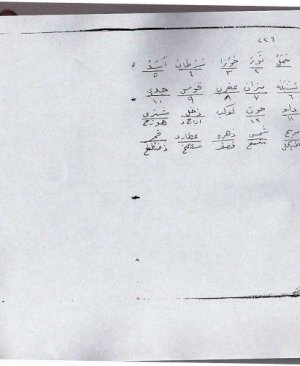 ٢٣٤
حمل ثور جوزا سرطان اسد
٢ ٣ ٤ ٥
سنبله ميزان عقرب قوس جدي
٦ ٧ ٨ ٩ ١٠
دلو حوت كوكب زحل مشتري
١١ ١٢
مريخ شمس زهره عطارد قمر